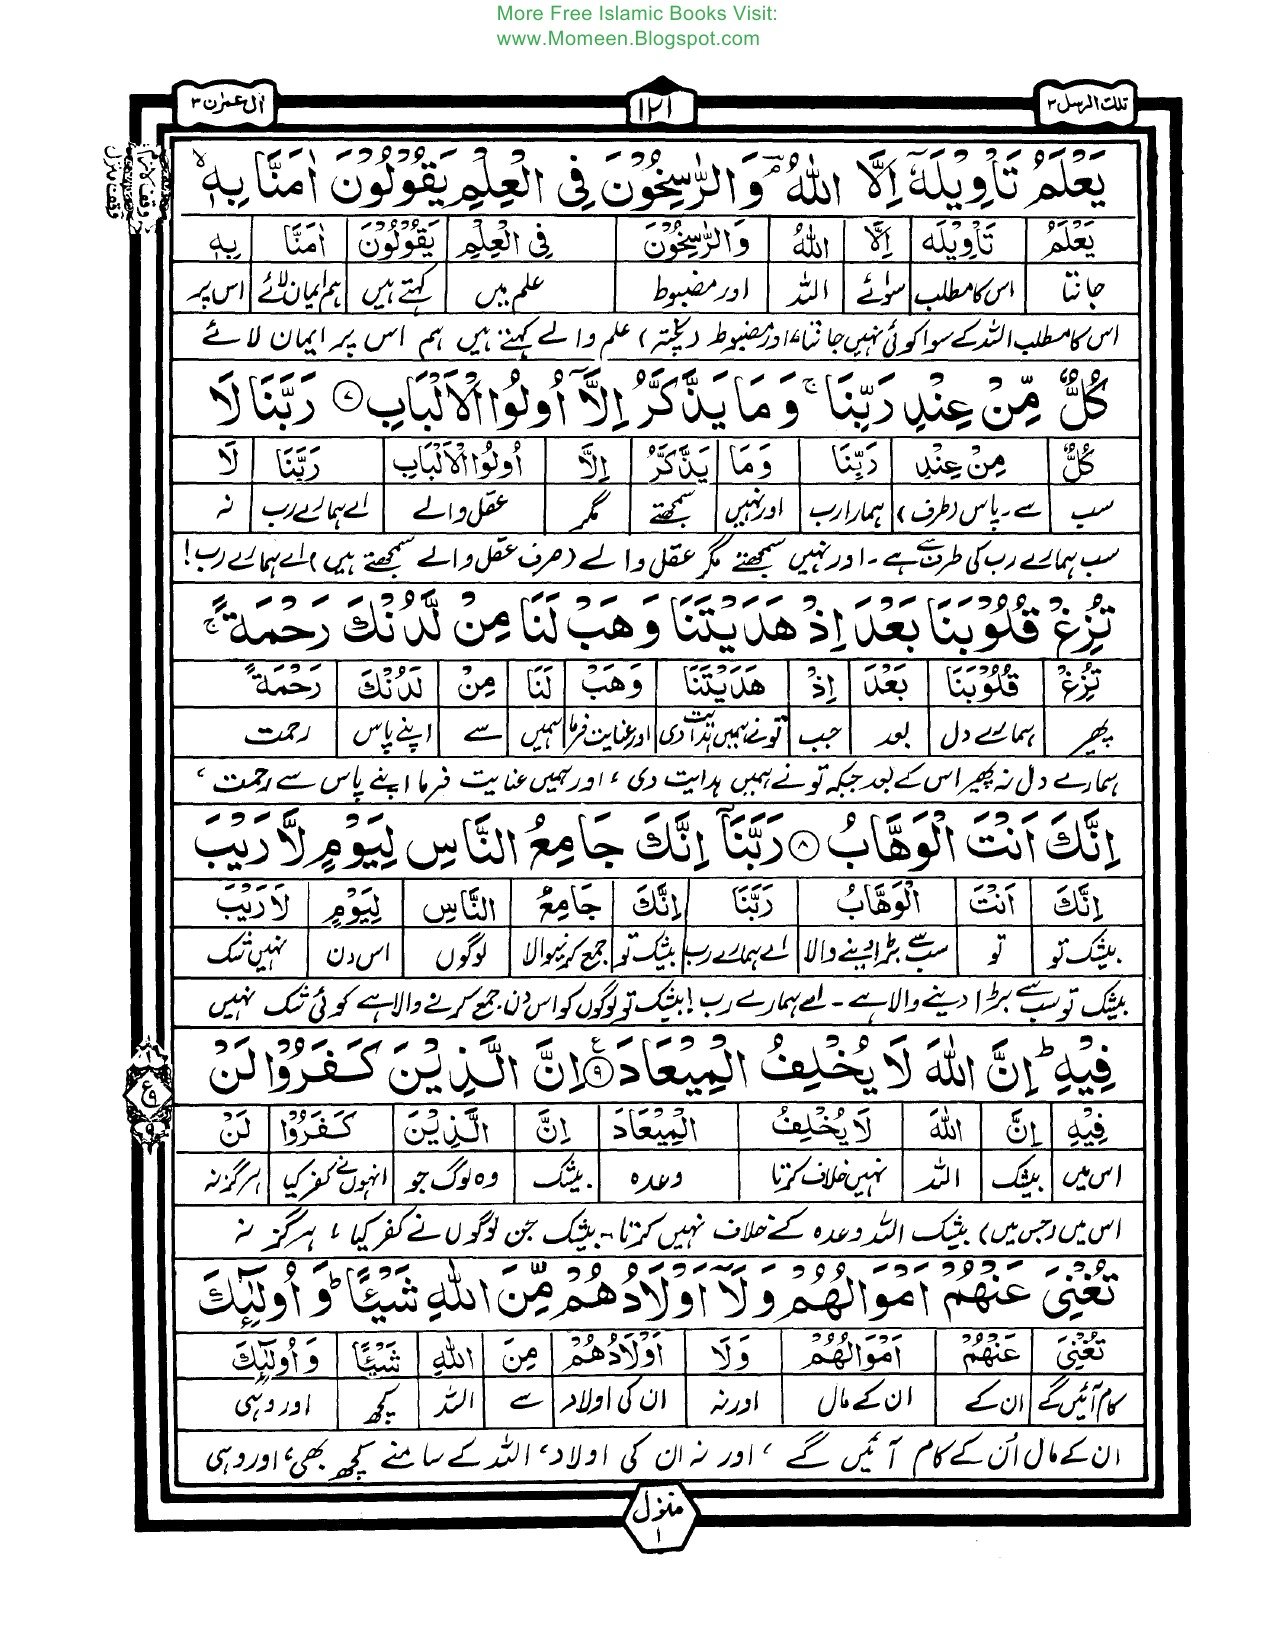 More Free Islamic Books Visit:
www.Momeen.Blogspot.com
تلك الرسل ٣
١٢١
اٰل عمرٰن ٣
يَعْلَمُ تَاْوِيْلَهٗٓ اِلَّا اللّٰهُ ۘ وَالرّٰسِخُوْنَ فِي الْعِلْمِ يَقُوْلُوْنَ اٰمَنَّا بِهٖ ۙ
يَعْلَمُ تَاْوِيْلَهٗ اِلَّا اللّٰهُ وَالرّٰسِخُوْنَ فِي الْعِلْمِ يَقُوْلُوْنَ اٰمَنَّا بِهٖ
جانتا اس کا مطلب سوائے اللہ اور مضبوط علم میں کہتے ہیں ہم ایمان لائے اس پر
اس کا مطلب اللہ کے سوا کوئی نہیں جانتا، اور مضبوط (پختہ) علم والے کہتے ہیں ہم اس پر ایمان لائے
كُلٌّ مِّنْ عِنْدِ رَبِّنَا ۚ وَمَا يَذَّكَّرُ اِلَّآ اُولُوا الْاَلْبَابِ ٧ رَبَّنَا لَا
كُلٌّ مِنْ عِنْدِ رَبِّنَا وَمَا يَذَّكَّرُ اِلَّا اُولُوا الْاَلْبَابِ رَبَّنَا لَا
سب سے۔پاس (طرف) ہمارا رب اور نہیں سمجھتے مگر عقل والے اے ہمارے رب نہ
سب ہمارے رب کی طرف سے ہے۔ اور نہیں سمجھتے مگر عقل والے (صرف عقل والے سمجھتے ہیں) اے ہمارے رب!
تُزِغْ قُلُوْبَنَا بَعْدَ اِذْ هَدَيْتَنَا وَهَبْ لَنَا مِنْ لَّدُنْكَ رَحْمَةً ۚ
تُزِغْ قُلُوْبَنَا بَعْدَ اِذْ هَدَيْتَنَا وَهَبْ لَنَا مِنْ لَدُنْكَ رَحْمَةً
پھیر ہمارے دل بعد جب تو نے ہمیں ہدایت دی اور عنایت فرما ہمیں سے اپنے پاس رحمت
ہمارے دل نہ پھیر اس کے بعد جبکہ تو نے ہمیں ہدایت دی، اور ہمیں عنایت فرما اپنے پاس سے رحمت،
اِنَّكَ اَنْتَ الْوَهَّابُ ٨ رَبَّنَآ اِنَّكَ جَامِعُ النَّاسِ لِيَوْمٍ لَّا رَيْبَ
اِنَّكَ اَنْتَ الْوَهَّابُ رَبَّنَا اِنَّكَ جَامِعُ النَّاسِ لِيَوْمٍ لَا رَيْبَ
بیشک تو تو سب سے بڑا دینے والا اے ہمارے رب بیشک تو جمع کرنیوالا لوگوں اس دن نہیں شک
بیشک تو سب سے بڑا دینے والا ہے۔ اے ہمارے رب! بیشک تو لوگوں کو اس دن جمع کرنے والا ہے کوئی شک نہیں
فِيْهِ ۭ اِنَّ اللّٰهَ لَا يُخْلِفُ الْمِيْعَادَ ٩ اِنَّ الَّذِيْنَ كَفَرُوْا لَنْ
فِيْهِ اِنَّ اللّٰهَ لَا يُخْلِفُ الْمِيْعَادَ اِنَّ الَّذِيْنَ كَفَرُوْا لَنْ
اس میں بیشک اللہ نہیں خلاف کرتا وعدہ بیشک وہ لوگ جو انہوں نے کفر کیا ہرگز نہ
اس میں (جس میں) بیشک اللہ وعدہ کے خلاف نہیں کرتا۔ بیشک جن لوگوں نے کفر کیا، ہرگز نہ
تُغْنِيَ عَنْهُمْ اَمْوَالُهُمْ وَلَآ اَوْلَادُهُمْ مِّنَ اللّٰهِ شَيْـًٔا ۭ وَاُولٰۗىِٕكَ
تُغْنِيَ عَنْهُمْ اَمْوَالُهُمْ وَلَا اَوْلَادُهُمْ مِنَ اللّٰهِ شَيْـًٔا وَاُولٰۗىِٕكَ
کام آئیں گے ان کے ان کے مال اور نہ ان کی اولاد سے اللہ کچھ اور وہی
ان کے مال اُن کے کام آئیں گے، اور نہ ان کی اولاد، اللہ کے سامنے کچھ بھی، اور وہی
منزل
١